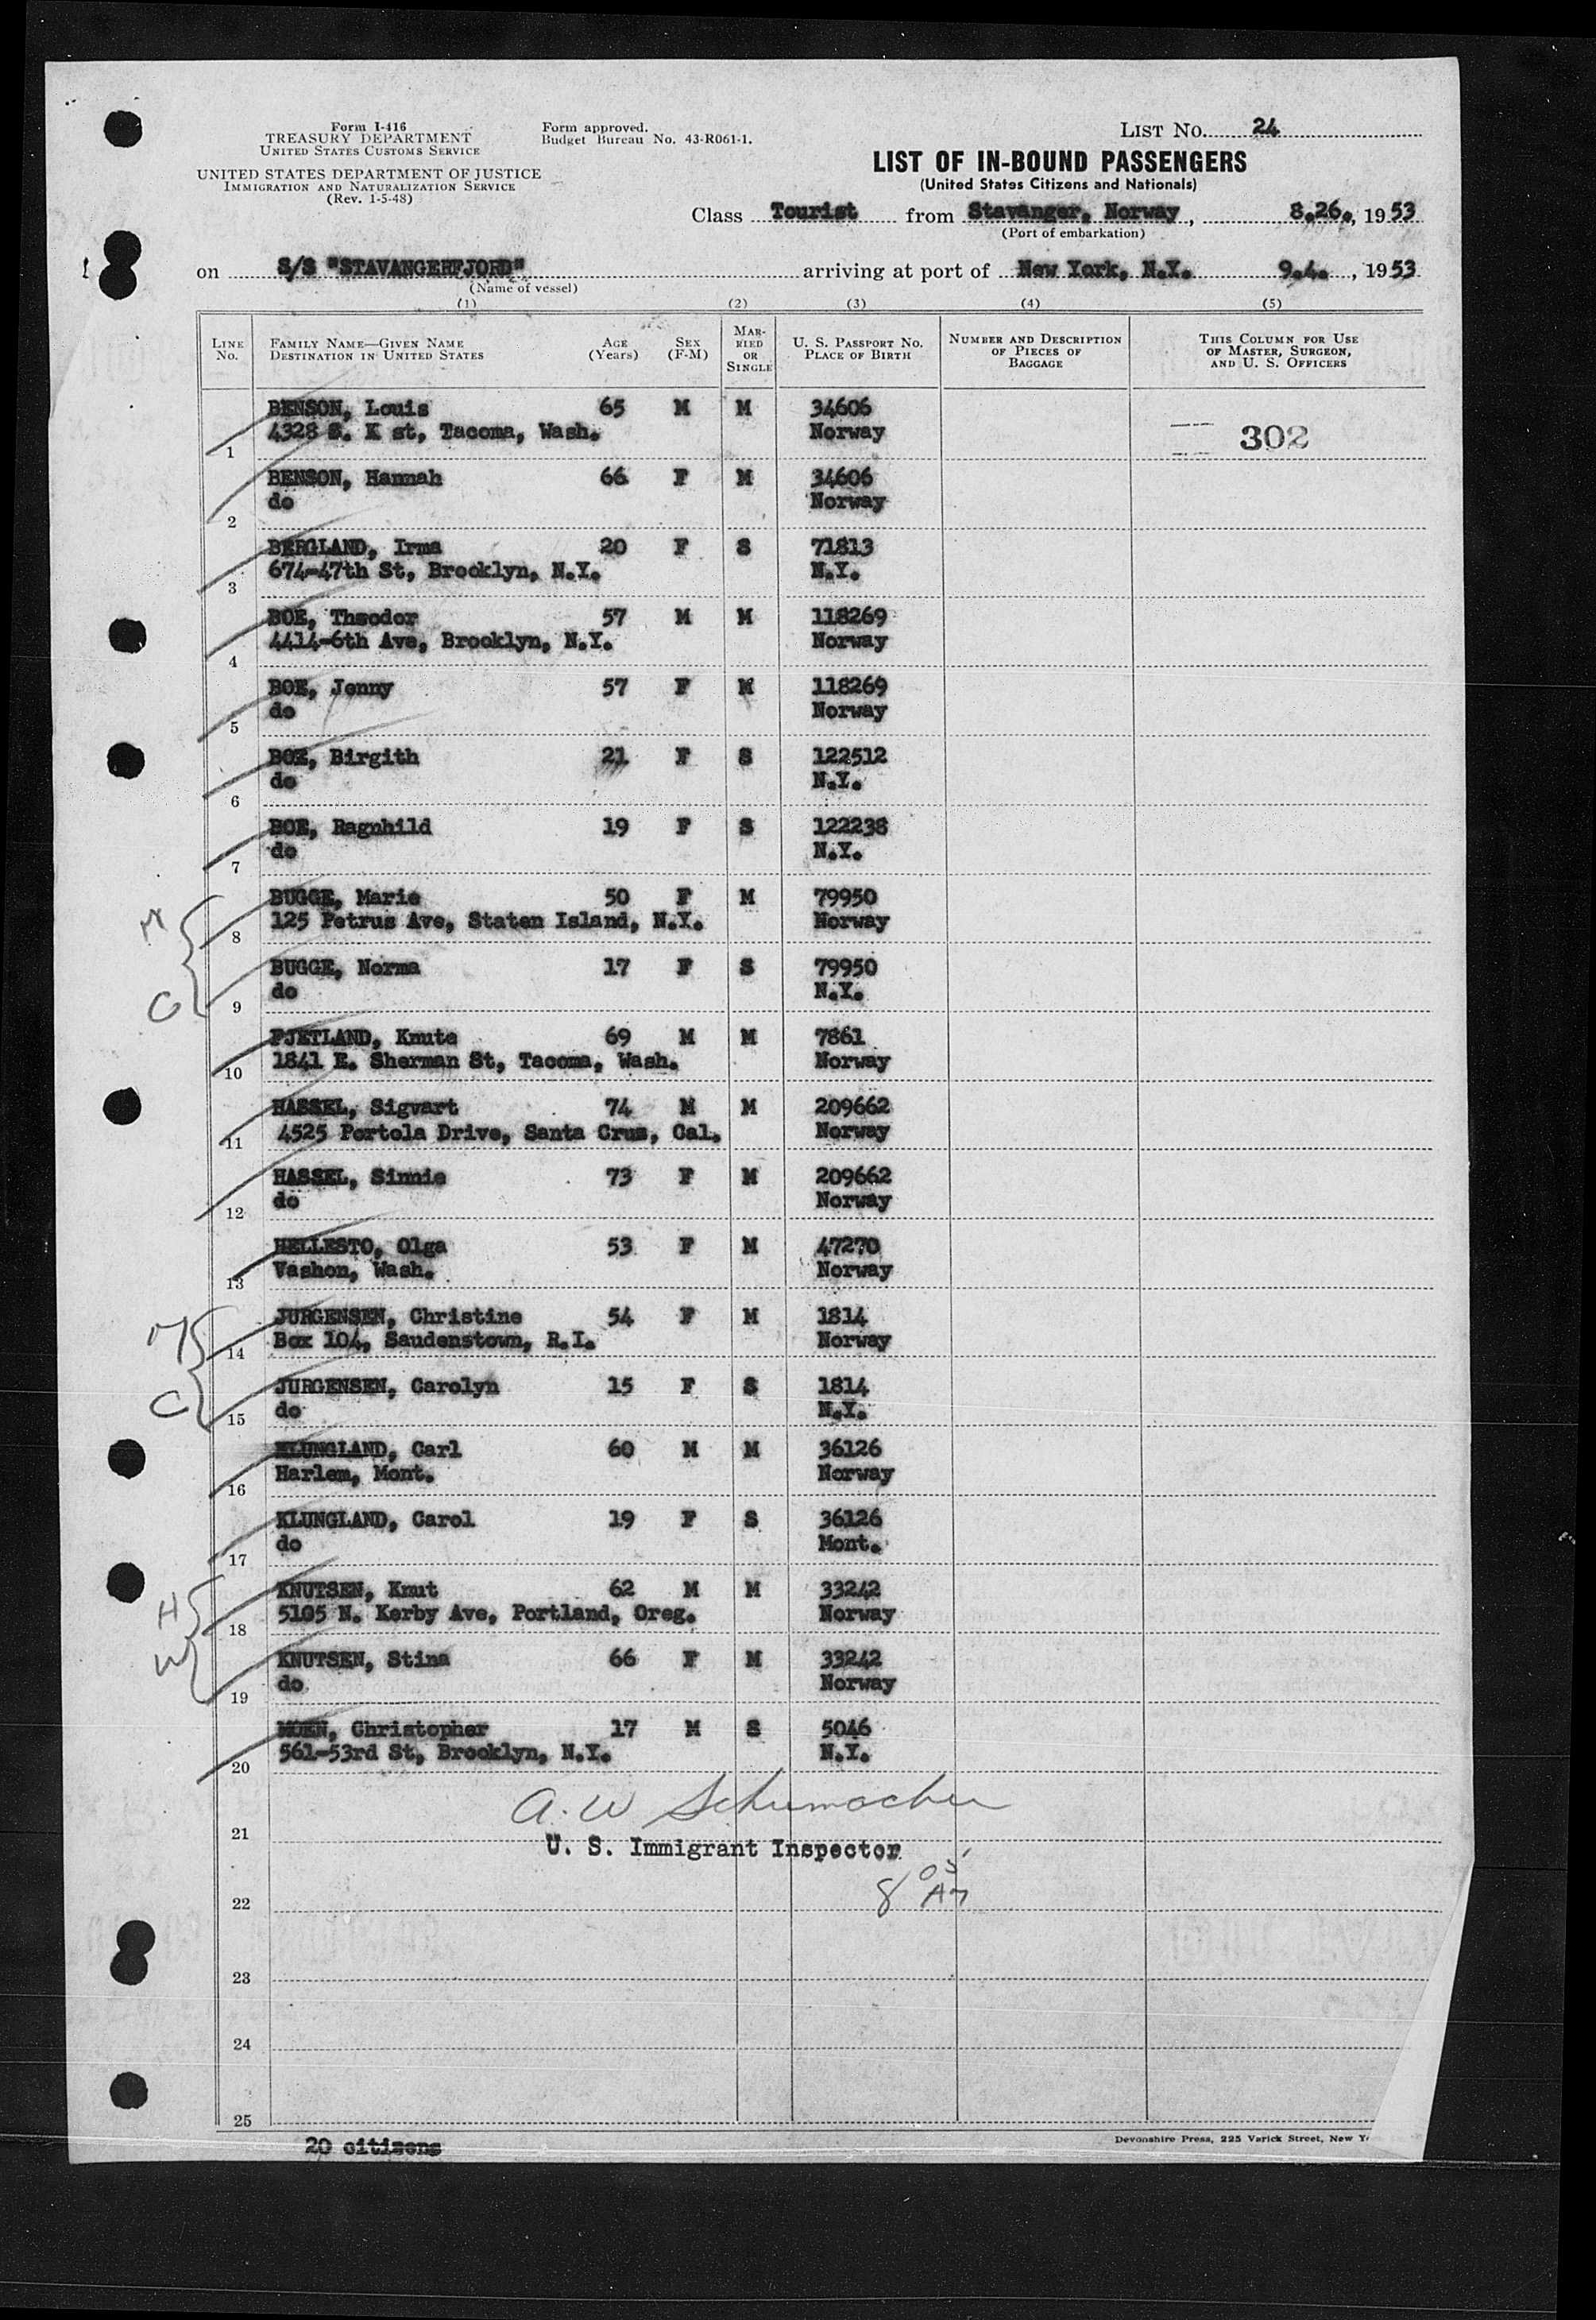 Form I-416
TREASURY DEPARTMENT
UNITED STATES CUSTOMS SERVICE
UNITED STATES DEPARTMENT OF JUSTICE
IMMIGRATION AND NATURALIZATION SERVICE
(Rev. 1-5-48)
Form approved.
Budget Bureau No. 43-R061-1.
LIST No. 24
LIST OF IN-BOUND PASSENGERS
(United States Citizens and Nationals)
Class Tourist from Stavanger, Norway, 8.26., 1953
(Port of embarkation)
on S/S "STAVANGERFJORD" arriving at port of New York, N.Y. 9.4. , 1953
(Name of vessel)
(1) (2) (3) (4) (5)
LINE No. FAMILY NAME—GIVEN NAME DESTINATION IN UNITED STATES AGE (Years) SEX (F-M) MARRIED OR SINGLE U. S. PASSPORT No. PLACE OF BIRTH NUMBER AND DESCRIPTION OF PIECES OF BAGGAGE THIS COLUMN FOR USE OF MASTER, SURGEON, AND U. S. OFFICERS
BENSON, Louis 65 M M 34606
4328 S. K st, Tacoma, Wash. Norway 302
1
BENSON, Hannah 66 F M 34606
do Norway
2
BERGLAND, Irma 20 F S 71813
674-47th St, Brooklyn, N.Y. N.Y.
3
BOE, Theodor 57 M M 118269
4414-6th Ave, Brooklyn, N.Y. Norway
4
BOE, Jenny 57 F M 118269
do Norway
5
BOE, Birgith 21 F S 122512
do N.Y.
6
BOE, Ragnhild 19 F S 122238
do N.Y.
7
BUGGE, Marie 50 F M 79950
M 125 Petrus Ave, Staten Island, N.Y. Norway
8
BUGGE, Norma 17 F S 79950
C do N.Y.
9
FJETLAND, Knute 69 M M 7861
1841 E. Sherman St, Tacoma, Wash. Norway
10
HASSEL, Sigvart 74 M M 209662
4525 Portola Drive, Santa Cruz, Cal. Norway
11
HASSEL, Sinnie 73 F M 209662
do Norway
12
HELLESTO, Olga 53 F M 47270
Vashon, Wash. Norway
13
JURGENSEN, Christine 54 F M 1814
M Box 104, Saudenstown, R.I. Norway
14
JURGENSEN, Carolyn 15 F S 1814
C do N.Y.
15
KLUNGLAND, Carl 60 M M 36126
Harlem, Mont. Norway
16
KLUNGLAND, Carol 19 F S 36126
do Mont.
17
KNUTSEN, Knut 62 M M 33242
H 5105 N. Kerby Ave, Portland, Oreg. Norway
18
KNUTSEN, Stina 66 F M 33242
W do Norway
19
MOEN, Christopher 17 M S 5046
561-53rd St, Brooklyn, N.Y. N.Y.
20
A. W Schumacher
21
U. S. Immigrant Inspector
8 05 AM
22
23
24
25
20 citizens
Devonshire Press, 225 Varick Street, New Y